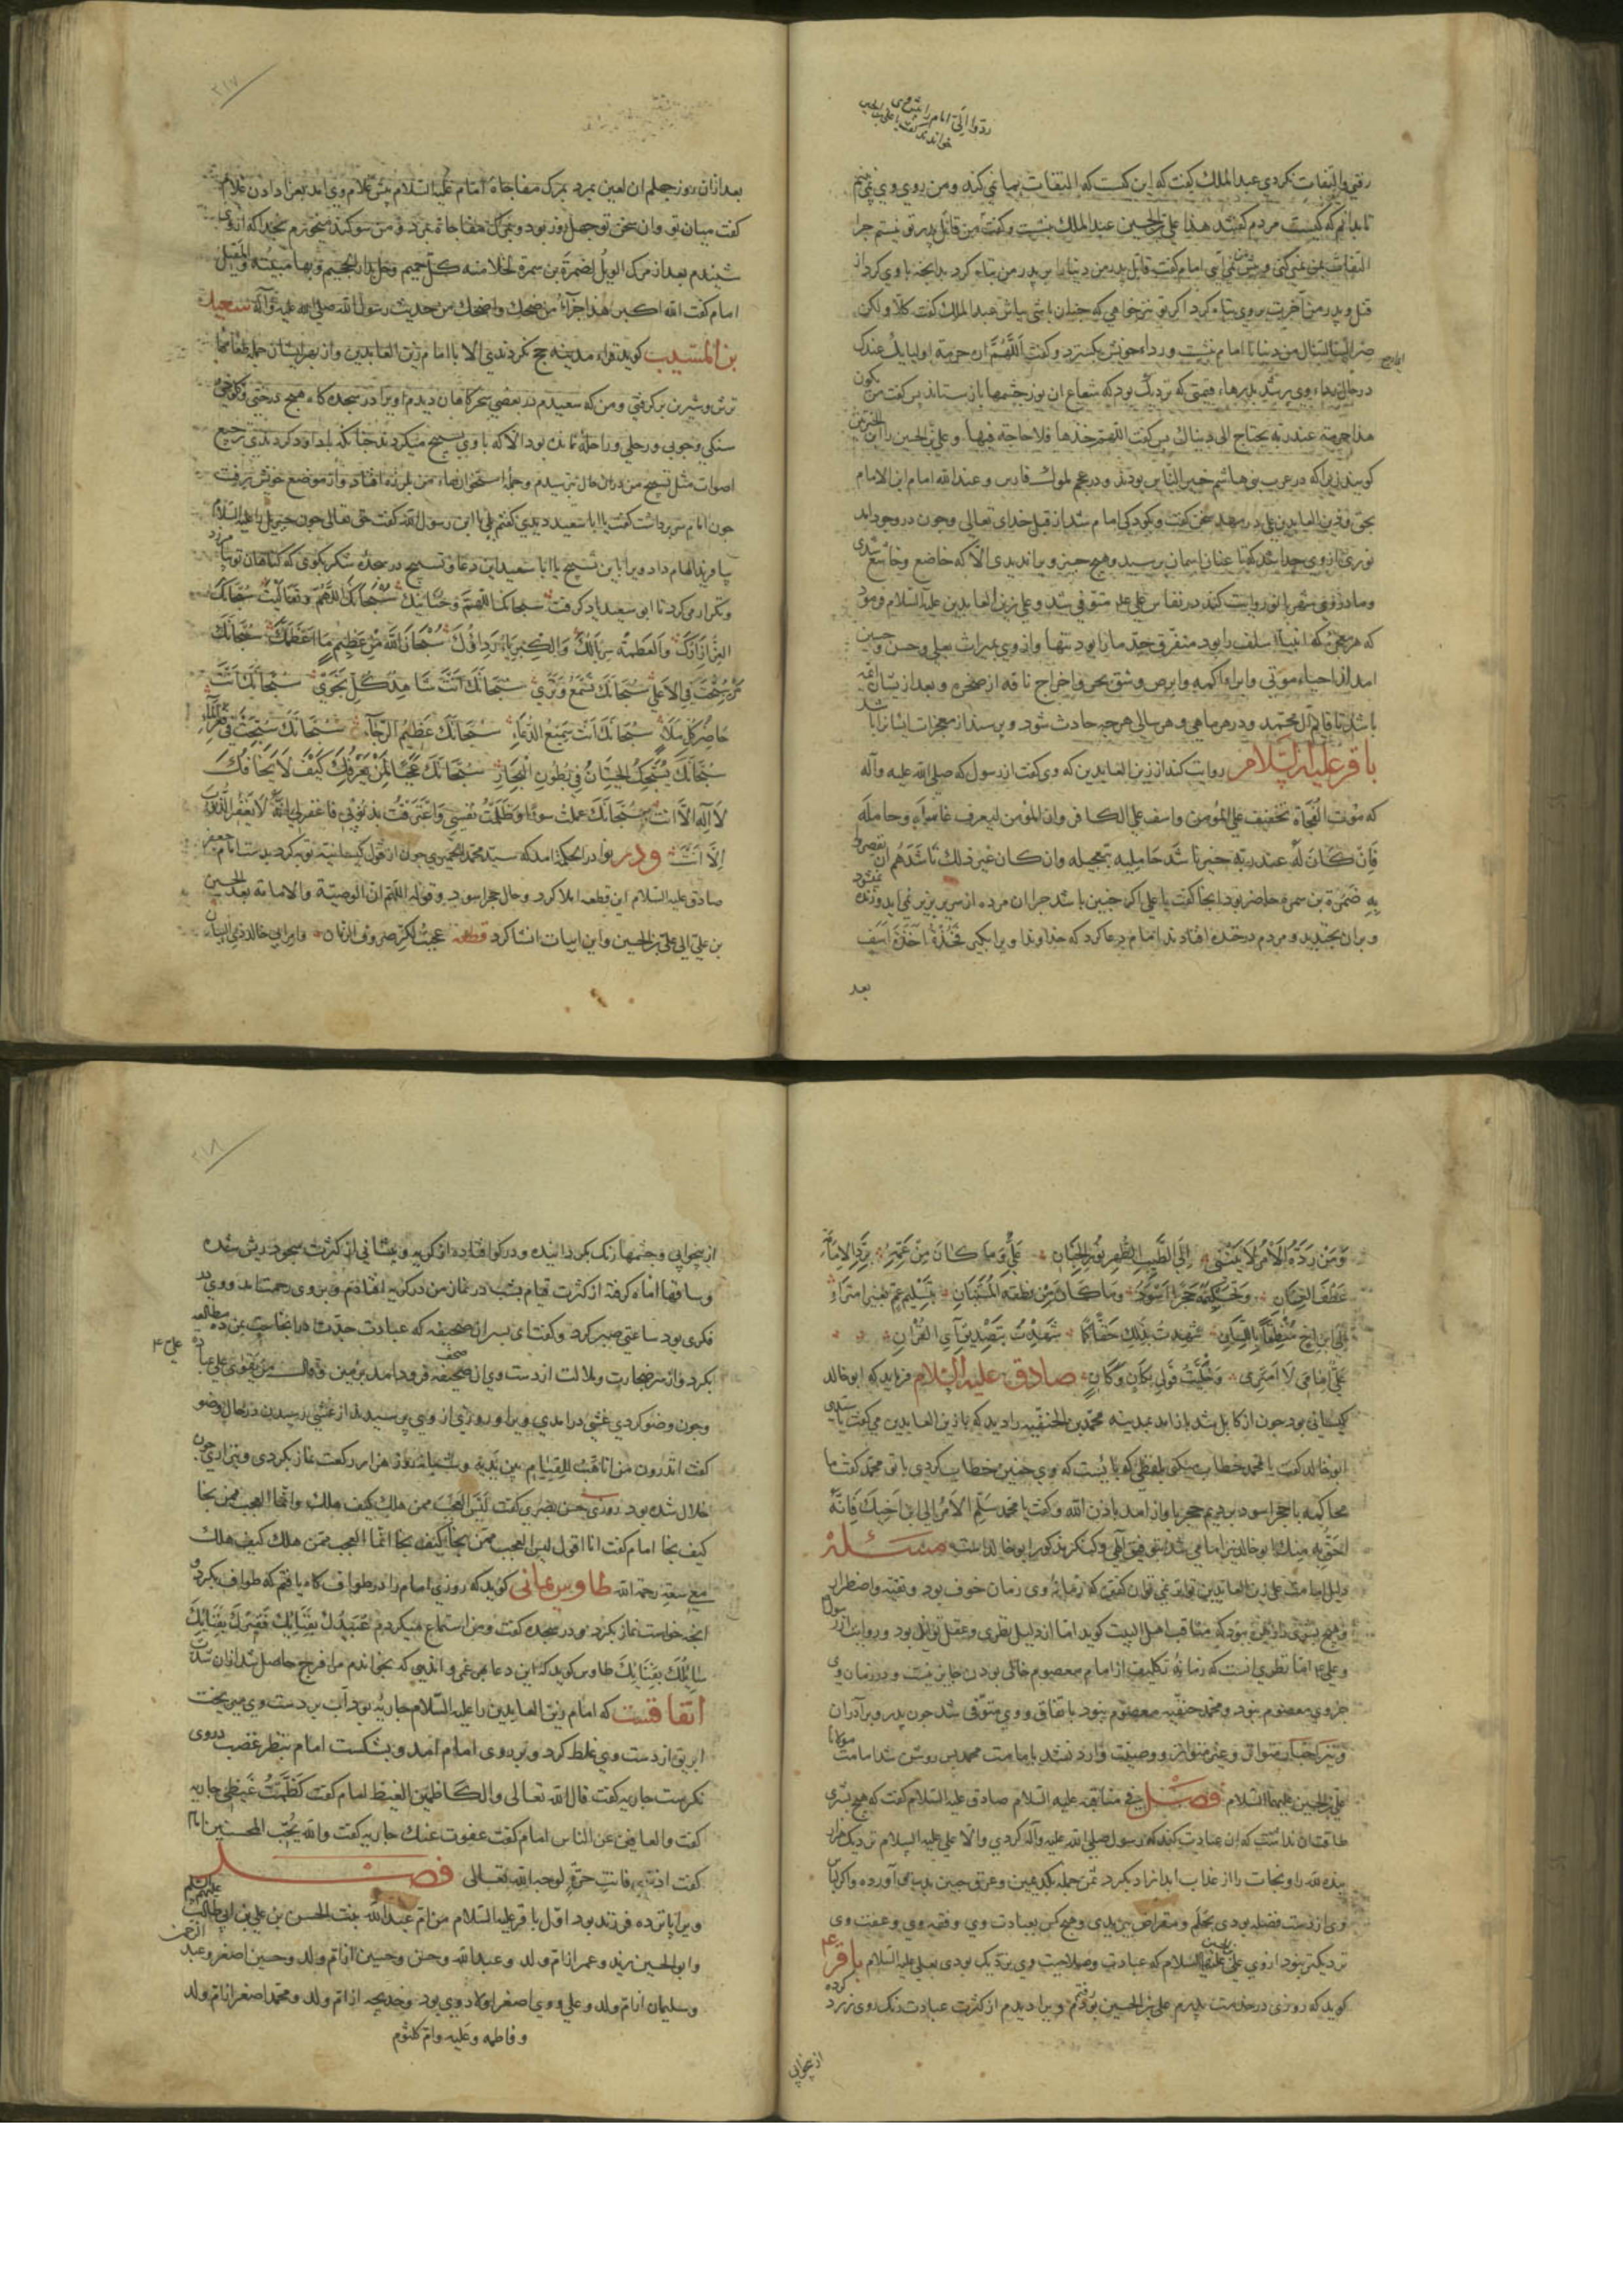 ردوا الی امام را
رفتی والتفات نکردی عبدالملک گفت که این کیست که التفات بما نمی کند ومن روی وی نمی بینم
تا بدانم که کیست مردم گفتند هذا علی بن الحسین عبدالملک بنشست وگفت من قاتل پدر تو نیستم چرا
التفات بمن نمی کنی وپیش نمی آیی امام گفت قاتل پدر من دنیا را بر پدر من تباه کرد بدانچه با وی کرد از
قتل وپدر من آخرت بر وی تباه کرد اگر تو نیز خواهی که چنان باشی باش عبدالملک گفت کلا ولکن
صر الینا لتنال من دنیانا امام بنشست ورداء خویش بگسترد وگفت اللهم اره حرمة اولیائک عندک
در حال رداء وی پر شد بدرهاء قیمتی که نزدیک بود که شعاع آن نور چشمها باز ستاند پس گفت من یکون
هذا حرمته عند ربه یحتاج الی دنیاک پس گفت اللهم خذها فلا حاجة فیها وعلی بن الحسین را ابن الخیرتین
گویند زیرا که در عرب بنی هاشم خیر الناس بودند ودر عجم ملوک فارس وعبدالله امام ابن الامام
بحق وزین العابدین علی در مهد سخن گفت وبکودکی امام شد از قبل خدای تعالی وچون در وجود آمد
نوری از وی جدا شد که تا عنان آسمان برسید وهیچ چیز ویرا ندیدی الا که خاضع وخاشع شدی
ومادر وی شهربانو روایت کنند در نفاس علی متوفی شد وعلی زین العابدین علیه السلام فرمود
که هر معجزی که انبیاء سلف را بود متفرق جد ما را بود تنها واز وی بمیراث بعلی وحسن وحسین
آمد از احیاء موتی وابراء اکمه وابرص وشق بحر واخراج ناقه از صخره وبعد از یشان ائمه
باشد تا قائم آل محمد ودر هر ماهی وهر سالی هر چه حادث شود وپرسند از معجزات ایشان را باشد
باقر علیه السلام روایت کند از زین العابدین که وی گفت از رسول که صلی الله علیه وآله
که موت الفجأة تخفیف علی المؤمن واسف علی الکافر وان المؤمن لیعرف غاسله وحامله
فان کان له عند ربه خیر ناشد حاملیه بتعجیله وان کان غیر ذلک ناشدهم ان یقصروا
به ضمرة بن سمره حاضر بود آنجا گفت یا علی اگر چنین باشد چرا آن مرده از سریر بزیر نمی آید وزنده نمی شود
وبران بخندید ومردم در خنده افتادند امام دعا کرد که خداوندا ویرا بگیر فخذه اخذة اسف
بعد
۲۱۷
بعد از آن روز چهلم آن لعین بمرد بمرگ مفاجاة امام علیه السلام پیش غلام وی آمد بعزا دادن غلام
گفت میان تو وآن سخن تو چهل روز بود وبمرگ مفاجاة بمرد ومن سوگند میخورم بخدا که از وی
شنیدم بعد از مرگ الویل لضمرة بن سمرة تخلا منه کل حمیم وحل بدار الجحیم وبها مبیته والمقیل
امام گفت الله اکبر هذا جزاء من ضحک واضحک من حدیث رسول الله صلی الله علیه وآله سعید
بن المسیب گوید قراء مدینه حج نکردندی الا با امام زین العابدین واز بهر ایشان حمل طعامها
ترش وشیرین بر گرفتی ومن که سعیدم در بعضی سحرگاهان دیدم او را در سجده گاه هیچ درختی وکلوخی
سنگی وچوبی ورحلی وراحله نماند بود الا که با وی تسبیح میکردند چنانکه با داود کردندی ترجیع
اصوات مثل تسبیح من در آن حال بترسیدم وجمله استخوانهاء من بلرزه افتاد واز موضع خویش برفت
چون امام سر برداشت گفت یا ابا سعید دیدی گفتم بلی یا ابن رسول الله گفت حق تعالی چون جبریل را علیه السلام
بیافرید الهام داد ویرا باین تسبیح یا ابا سعید این دعا وتسبیح در سجده شکر بگوی که گناهان تو بیامرزد
وتکرار می کرد تا ابی سعید یاد گرفت سبحانک اللهم وحنانیک سبحانک اللهم وتعالیت سبحانک
العز ازارک والعظمة سربالک والکبریاء رداؤک سبحان الله من عظیم ما اعظمک سبحانک
سبحت فی الاعلی سبحانک تسمع وتری سبحانک انت شاهد کل نجوی سبحانک انت
حاضر کل ملاء سبحانک انت سمیع الدعاء سبحانک عظیم الرجاء سبحانک سبحت فی قعر الماء
سبحانک یسبحک الحیتان فی بطون البحار سبحانک عجبا لمن یعرفک کیف لا یخافک
لا آله الا انت سبحانک عملت سوءا وظلمت نفسی واعترفت بذنوبی فاغفر لی انه لا یغفر الذنوب
الا انت ودر نوادر الحکمة آمد که سید محمد الحمیری چون از قول کیسانیه توبه کرد بدست امام جعفر
صادق علیه السلام این قطعه املا کرد وحال حجر اسود وقوله اللهم ان الوصیة والامامة بعد الحسین
بن علی الی علی بن الحسین واین ابیات انشا کرد قطعه عجبت لکر صروف الزمان وامر ابی خالد ذی البیان
ومن رده الامر لا ینثنی الی الطیب الطهر نور الجنان علی وما کان من عمه برد الامامة
عطف العنان وتحکیمه حجرا اسودا وما کان من نطقه المستبان بتسلیم عم بغیر امتراء
الی ابن اخ منطقا باللسان شهدت بذلک حقا کما شهدت بتصدیق آی القرآن
علی امامی لا امتری وخلیت قولی بکان وکان صادق علیه السلام فرماید که ابو خالد
کیسانی بود چون از کابل شد باز آمد بمدینه محمد بن الحنفیه را دید که با زین العابدین می گفت یا سیدی
ابو خالد گفت یا محمد خطاب میکنی بلفظی که بایست که وی چنین خطاب کردی با تو محمد گفت ما
محاکمه با حجر اسود بردیم حجر بآواز آمد باذن الله وگفت یا محمد سلم الامر الی ابن اخیک فانه
احق به منک ابو خالد نیز امامی شد بتوفیق الهی وکنکر مذکور ابو خالد است مسئله
دلیل امامت علی زین العابدین تواتر نمی توان گفتن که زمانه وی زمان خوف بود وتقیه واضطرار
وهیچ بشری را زهره نبود که مناقب اهل البیت گوید اما از دلیل نظری وعقل توان بود وروایت از رسول
وعلی ۴ اما نظری آنست که زمانه تکلیف از امام معصوم خالی بودن جایز نیست ودر زمان وی
جز وی معصوم نبود ومحمد حنفیه معصوم نبود باتفاق ووی متوفی شد چون پدر وبرادران
ونیز اخبار متواتر وغیر متواتر ووصیت وارد نشد بامامت محمد پس روشن شد امامت مولانا
علی بن الحسین علیهما السلام فصل فی مناقبه علیه السلام صادق علیه السلام گفت که هیچ بشری
طاقت آن نداشت که آن عبادت کند که رسول صلی الله علیه وآله کردی والا علی علیه السلام نزدیک هزار
بنده لله راو نجات را از عذاب ابد آزاد بکرد ثمن جمله بکد یمین وعرق جبین بدست آورده واگر لباس
وی از دست فضله بودی بجلم ومقراض ببریدی وهیچ کس بعبادت وی وفقه وی وعفت وی
نزدیکتر نبود از وی علی بن الحسین علیهما السلام که عبادت وصلاحیت وی نزدیک بودی بعلی علیه السلام باقر ۴
گوید که روزی در خدمت پدرم علی بن الحسین بودم ویرا دیدم از کثرت عبادت رنگ روی زرد کرده
از بیخوابی
۲۱۸
از بیخوابی وچشمها رنگ بگردانیده ودر گو افتاده از گریه وپیشانی از کثرت سجود ریش شده
وساقها آماه گرفته از کثرت قیام بشب در نماز من در گریه افتادم وبر وی رحمت آمد ووی در
فکری بود ساعتی صبر کرد وگفت ای پسر آن صحیفه که عبادت جدت در آنجاست بمن ده مطالعه
بکرد واز سر ضجارت وملالت از دست وی آن صحیفه فرود آمد بزمین وقال من یقوی علی عبادة علی ۴
وچون وضو کردی غشی در آمدی ویرا وروزی از وی پرسیدند از غشی رسیدن در حال وضو
گفت اندرون من اتأهب للقیام بین یدیه وشبانه روز هزار رکعت نماز بکردی وبزاری چون
خلال شده بود روزی حسن بصری گفت لیس العجب ممن هلک کیف هلک وانما العجب ممن نجا
کیف نجا امام گفت انا اقول لیس العجب ممن نجا کیف نجا انما العجب ممن هلک کیف هلک
مع سعة رحمة الله طاوس یمانی گوید که روزی امام را در طواف گاه یافتم که طواف بکرد و
آنچه خواست نماز بکرد ودر سجده گفت ومن استماع میکردم عبیدک بفنائک فقیرک بفنائک
سائلک بفنائک طاوس گوید که این دعا بهر غمی واندهی که بخواندم مرا فرج حاصل شد از آن شدت
اتفاقست که امام زین العابدین را علیه السلام جاریه بود آب بر دست وی میریخت
ابریق از دست وی غلط کرد وبر روی امام آمد وبشکست امام بنظر غضب در وی
نکریست جاریه گفت قال الله تعالی والکاظمین الغیظ امام گفت کظمت غیظی جاریه
گفت والعافین عن الناس امام گفت عفوت عنک جاریه گفت والله یحب المحسنین امام
گفت اذهبی فانت حرة لوجه الله تعالی فصل
ویرا پانزده فرزند بود اول باقر علیه السلام من ام عبدالله بنت الحسن بن علی بن ابی طالب علیهم السلم
وابو الحسین زید وعمر از ام ولد وعبدالله وحسن وحسین از ام ولد وحسین اصغر وعبد الرحمن
وسلیمان از ام ولد وعلی ووی اصغر اولاد وی بود وخدیجه از ام ولد ومحمد اصغر از ام ولد
وفاطمه وعلیه وام کلثوم